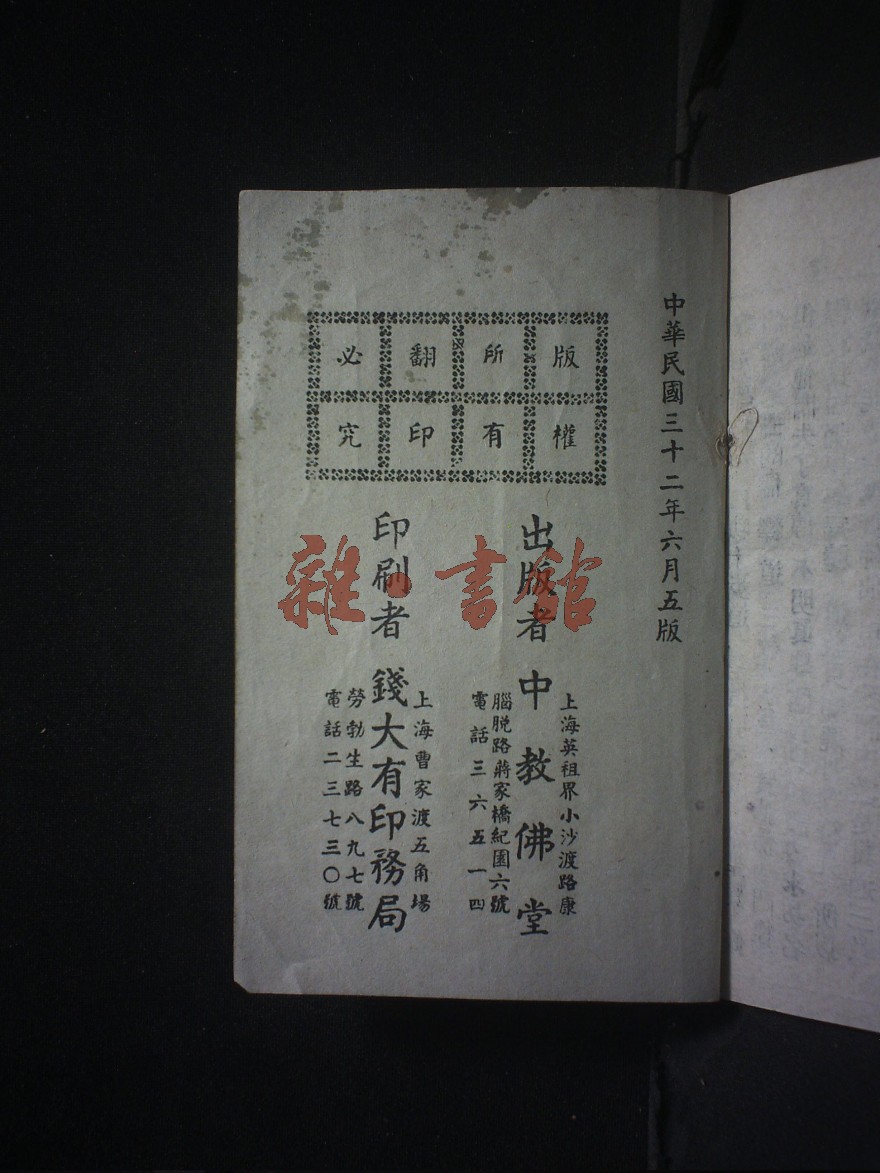 中華民國三十二年六月五版
版權
所有
翻印
必究
出版者 中教佛堂
上海英祖界小沙渡路康
腦脫路蔣家橋紀園六號
電話三六五一四
印刷者 錢大有印務局
上海曹家渡五角場
勞勃生路八九七號
電話二三七三〇號
雜·書館